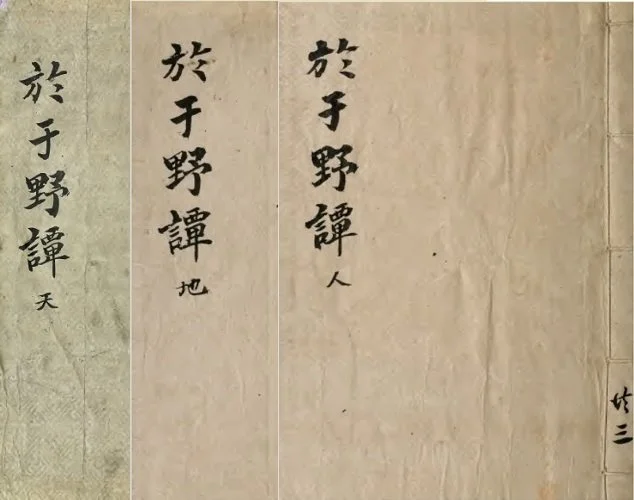 於于野譚 天
於于野譚 地
於于野譚 人
共三